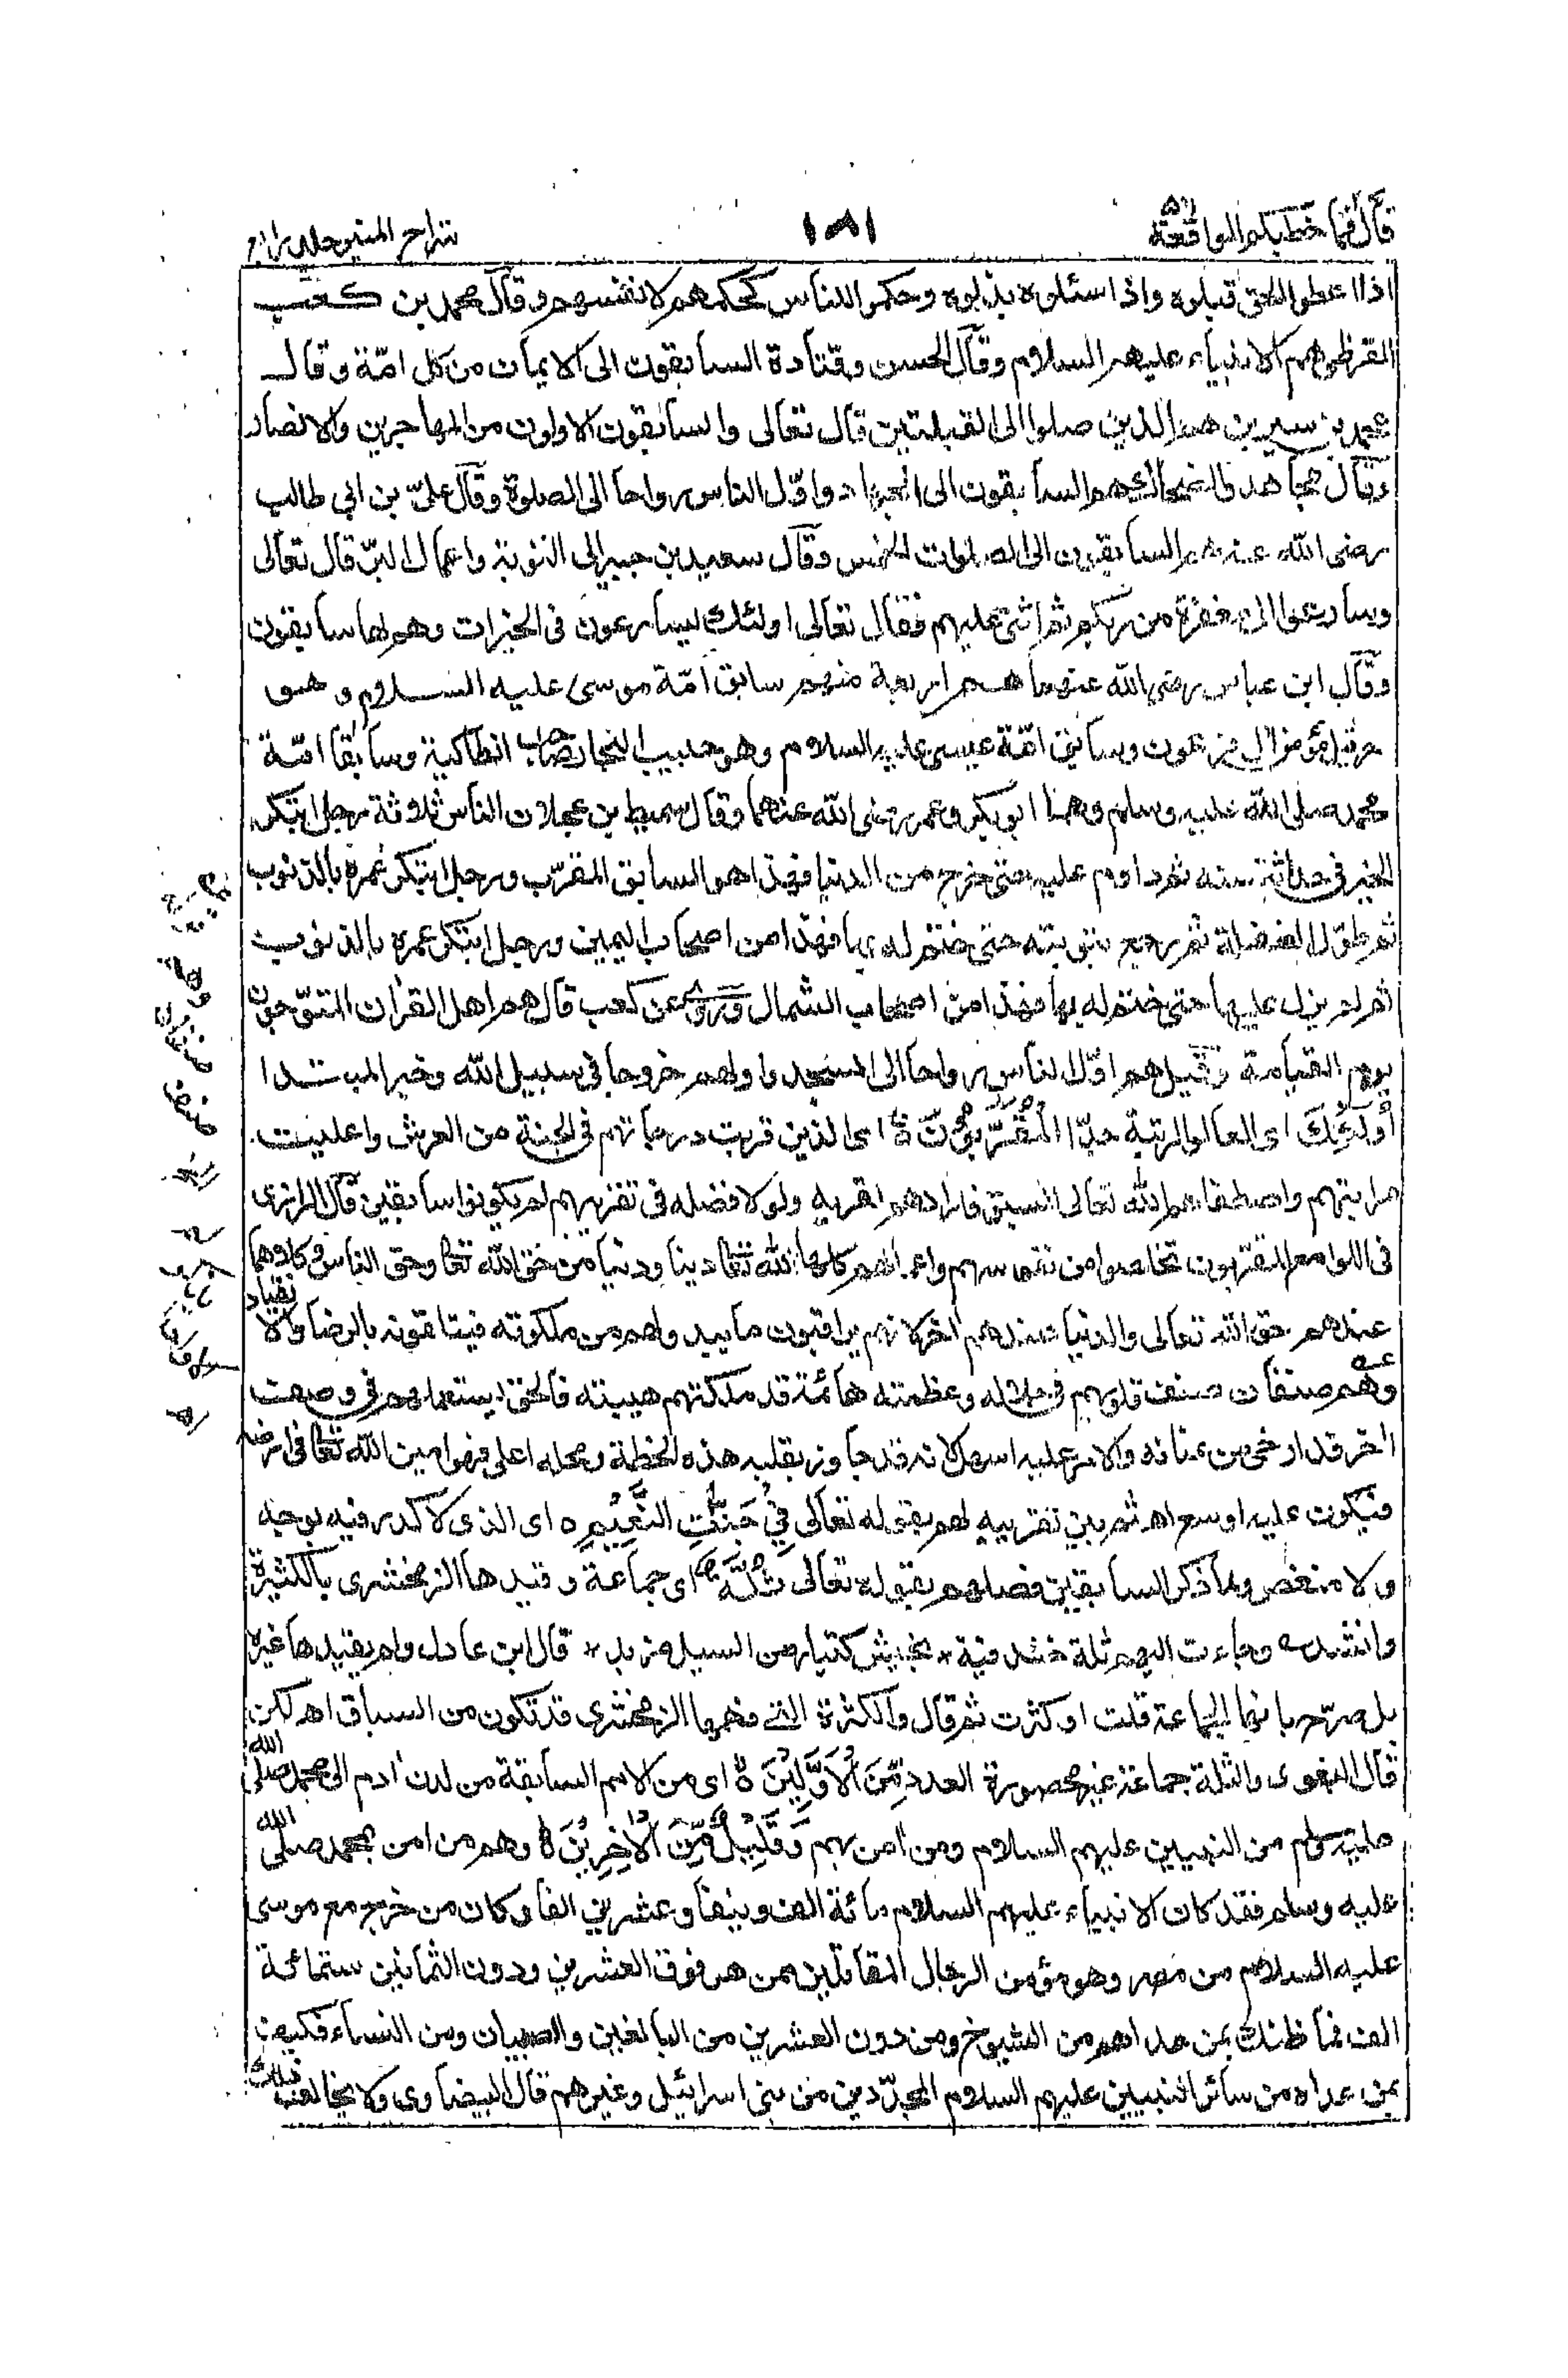 قال فما خطبكم الواقعة ٥٦
١٨١
سراج المنير جلد رابع
اذا اعطوا الحق قبلوه واذا سئلوه بذلوه وحكموا للناس كحكمهم لانفسهم وقال محمد بن كعب
القرظي هم الانبياء عليهم السلام وقال الحسن وقتادة السابقون الى الايمان من كل امّة وقال
محمد بن سيرين هم الذين صلوا الى القبلتين قال تعالى والسابقون الاولون من المهاجرين والانصار
وقال مجاهد والضحاك هم السابقون الى الجهاد واوّل الناس رواحا الى الصلوة وقال علىّ بن ابي طالب
رضى الله عنه هم السابقون الى الصلوات الخمس وقال سعيد بن جبير الى التوبة واعمال البرّ قال تعالى
وسارعوا الى مغفرة من ربكم ثم اثنى عليهم فقال تعالى اولئك يسارعون فى الخيرات وهم لها سابقون
وقال ابن عباس رضى الله عنهما هم اربعة منهم سابق امّة موسى عليه السلام وهو
حزقيل مؤمن ال فرعون وسابق امّة عيسى عليه السلام وهو حبيب النجار صاحب انطاكية وسابقا امّة
محمد صلى الله عليه وسلم وهما ابوبكر وعمر رضى الله عنهما وقال سميط بن عجلان الناس ثلاثة رجل ابتكر
الخير فى حداثة سنه ثم داوم عليه حتى خرج من الدنيا فهذا هو السابق المقرّب ورجل ابتكر عمره بالذنوب
ثم طوّل الغفلة ثم رجع بتوبته حتى ختم له بها فهذا من اصحاب اليمين ورجل ابتكر عمره بالذنوب
ثم لم يزل عليها حتى ختم له بها فهذا من اصحاب الشمال وروى عن كعب قال هم اهل القران المتوّجون
يوم القيامة وقيل هم اوّل الناس رواحا الى المسجد واولهم خروجا فى سبيل الله وخبر المبتدا
أُولٰئِكَ اى العالو الرتبة جدّا الْمُقَرَّبُوْنَ ۝ اى الذين قربت درجاتهم فى الجنة من العرش واعليت
مراتبهم واصطفاهم الله تعالى للسبق فارادهم لقربه ولولا فضله فى تقريبهم لم يكونوا سابقين قال الرازى
فى اللوامع المقربون تخلصوا من نفوسهم واعمالهم كلها لله تعا دينا ودنيا من حق الله تعا وحق الناس وكلاهما
عندهم حق الله تعالى والدنيا عندهم اخر لانهم يراقبون ما يبدو لهم من ملكوته فيتلقونه بالرضا والانقياد
وهم صنفان صنف قلوبهم فى جلاله وعظمته هائمة قد ملكتهم هيبته فالحق يستعملهم وصنف
اخر قد ارخى من عنانه والامر عليه اسهل لانه قد جاوز بقلبه هذه الخطة ومحله اعلى فهو امين الله تعا فى ارضه
فيكون عليه اوسع اهـ ثم بين تقريبه لهم بقوله تعالى فِيْ جَنّٰتِ النَّعِيْمِ ۝ اى الذى لا كدر فيه بوجه
ولا منغص ولما ذكر السابقين فصلهم بقوله تعالى ثُلَّةٌ اى جماعة وقيدها الزمخشرى بالكثيرة
وانشد وجاءت اليهم ثلة خندفية * بجيش كتيار من السيل مزبد * قال ابن عادل ولم يقيدها غيره
بل صرّح بانها الجماعة قلت او كثرت ثم قال والكثرة التى فهمها الزمخشرى قد تكون من السياق اهـ لكن
قال البغوى والثلة جماعة غير محصورة العدد مِّنَ الْاَوَّلِيْنَ ۝ اى من الامم السابقة من لدن ادم الى محمد صلى الله
عليه وسلم من النبيين عليهم السلام ومن امن بهم وَقَلِيْلٌ مِّنَ الْاٰخِرِيْنَ ۝ وهم من امن بمحمد صلى الله
عليه وسلم فقد كان الانبياء عليهم السلام مائة الف ونيفا وعشرين الفا وكان من خرج مع موسى
عليه السلام من مصر وهو مؤمن الرجال المقاتلين ممن هو فوق العشرين ودون الثمانين ستمائة
الف فما ظنك بمن عداهم من الشيوخ ومن دون العشرين من البالغين والصبيان ومن النساء فكيف
بمن عداه من سائر النبيين عليهم السلام المجدّدين من بنى اسرائيل وغيرهم قال البيضاوى ولا يخالف ذلك